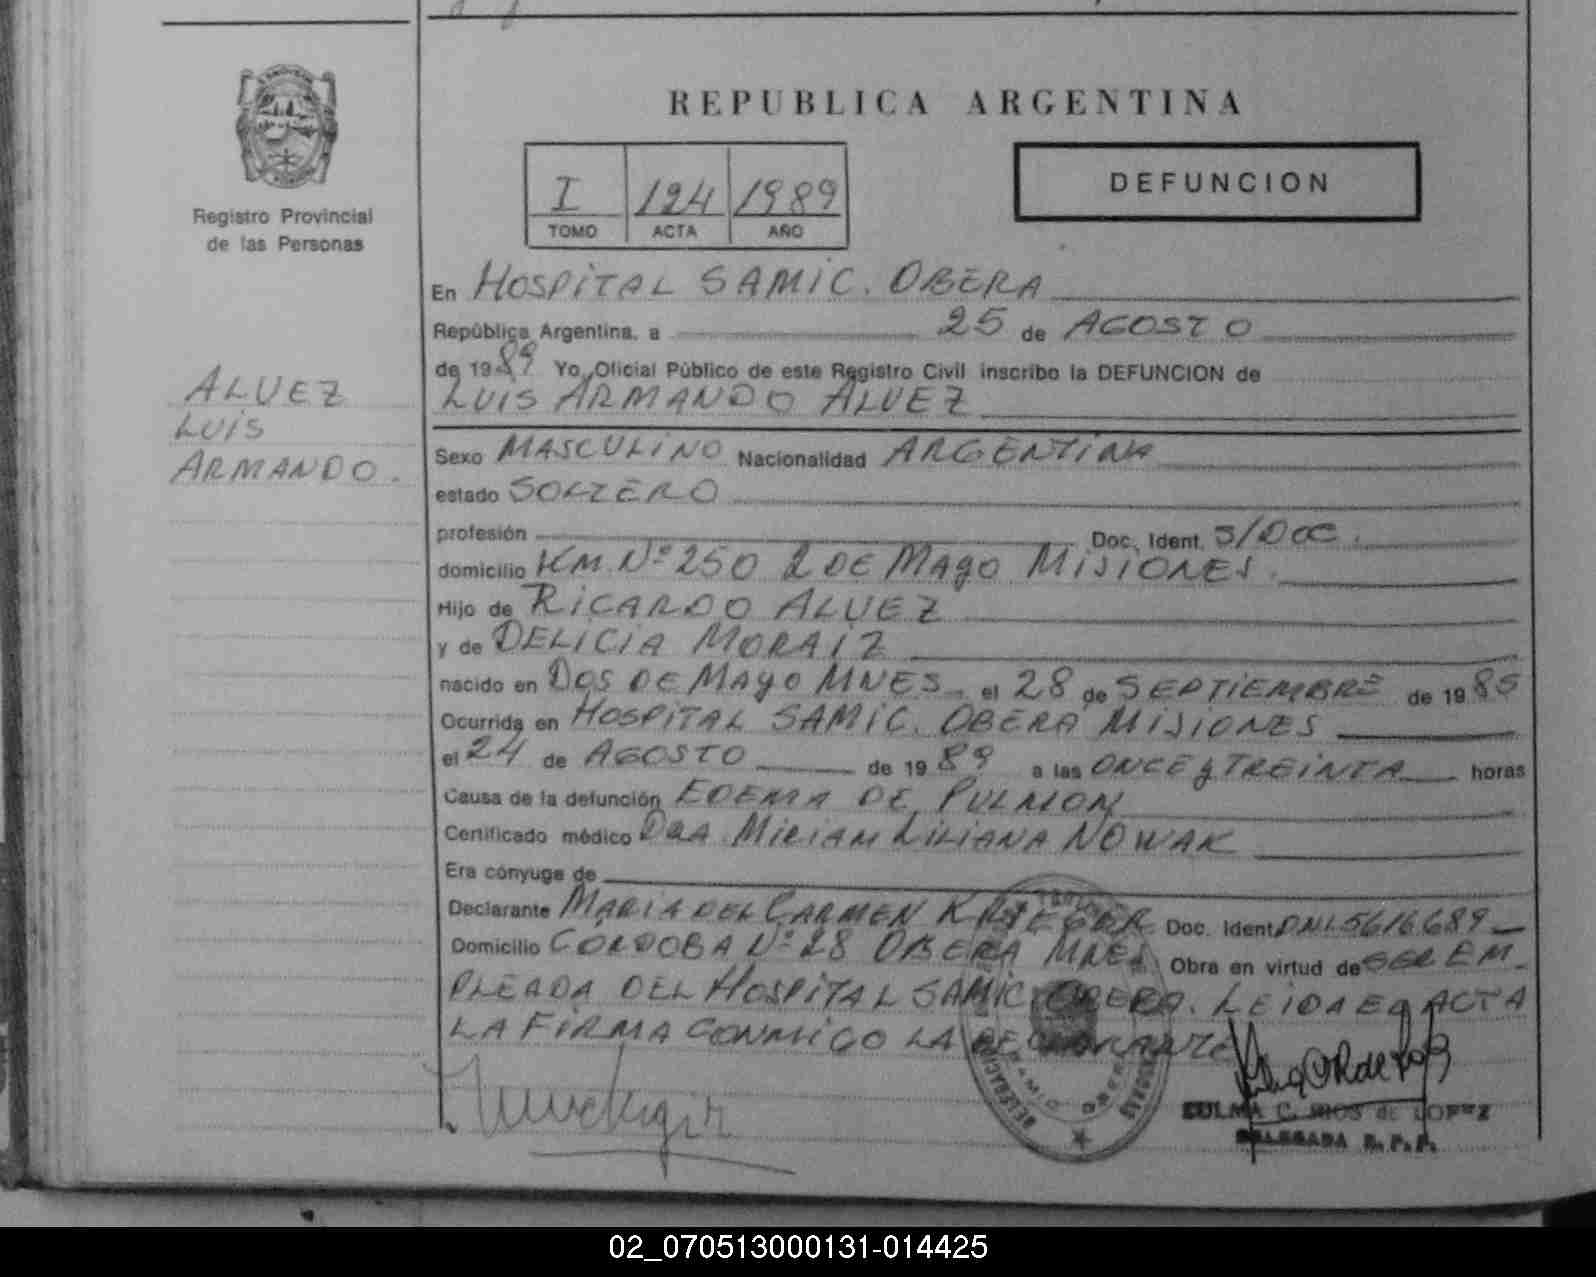 REPUBLICA ARGENTINA
I 124 1989
TOMO ACTA AÑO
DEFUNCION
Registro Provincial
de las Personas
ALVEZ
LUIS
ARMANDO.
En HOSPITAL SAMIC. OBERA
República Argentina, a 25 de AGOSTO
de 1989 Yo, Oficial Público de este Registro Civil inscribo la DEFUNCION de
LUIS ARMANDO ALVEZ
Sexo MASCULINO Nacionalidad ARGENTINA
estado SOLTERO
profesión Doc. Ident. S/DOC.
domicilio KM. Nº 250 2 DE MAYO MISIONES.
Hijo de RICARDO ALVEZ
y de DELICIA MORAIZ
nacido en DOS DE MAYO MNES el 28 de SEPTIEMBRE de 1985
Ocurrida en HOSPITAL SAMIC. OBERA MISIONES
el 24 de AGOSTO de 1989 a las ONCE y TREINTA horas
Causa de la defunción EDEMA DE PULMON
Certificado médico DRA. MIRIAM LILIANA NOWAK
Era cónyuge de
Declarante MARIA DEL CARMEN KRIEGER Doc. Ident. DNI. 5616689
Domicilio CORDOBA Nº 28 OBERA MNES Obra en virtud de SER EM
PLEADA DEL HOSPITAL SAMIC. OBERA. LEIDA EL ACTA
LA FIRMA CONMIGO LA DECLARANTE
ZULMA C. RIOS de LOPEZ
DELEGADA R. P. P.
02_070513000131-014425